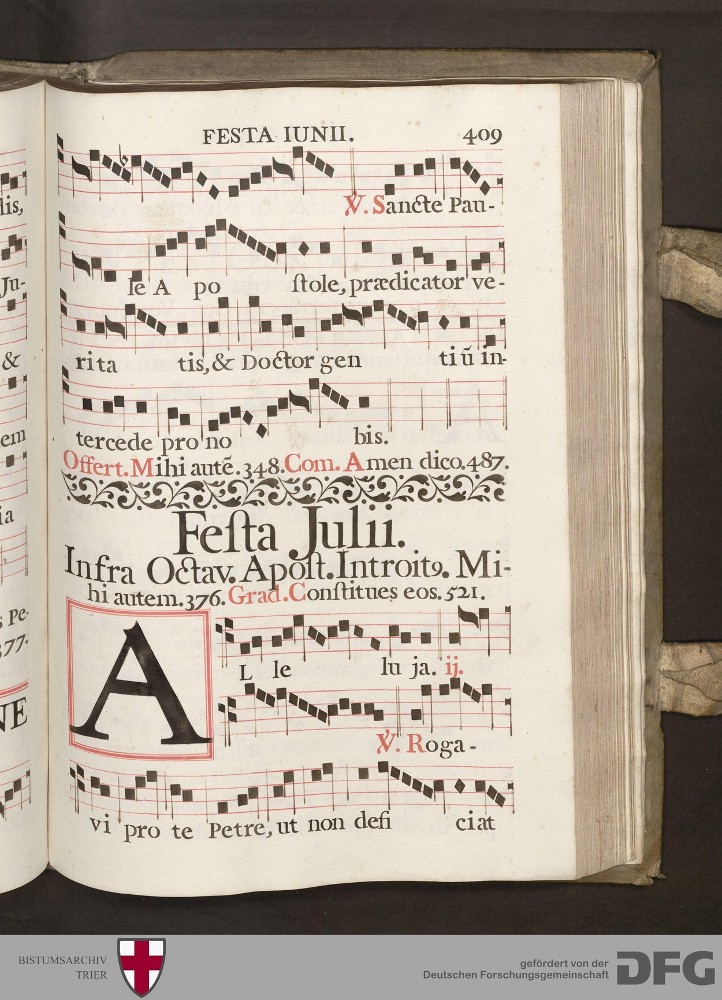 lis,
Ju-
&
em
ia
s Pe-
377.
NE
FESTA IUNII. 409
℣. Sancte Pau-
le A po stole, prædicator ve-
rita tis, & Doctor gen tiū in-
tercede pro no bis.
Offert. Mihi autē. 348. Com. Amen dico. 487.
Festa Julii.
Infra Octav. Apost. Introitꝰ. Mi-
hi autem. 376. Grad. Constitues eos. 521.
A
L le lu ja. ij.
℣. Roga-
vi pro te Petre, ut non defi ciat
BISTUMSARCHIV
TRIER
gefördert von der
Deutschen Forschungsgemeinschaft
DFG